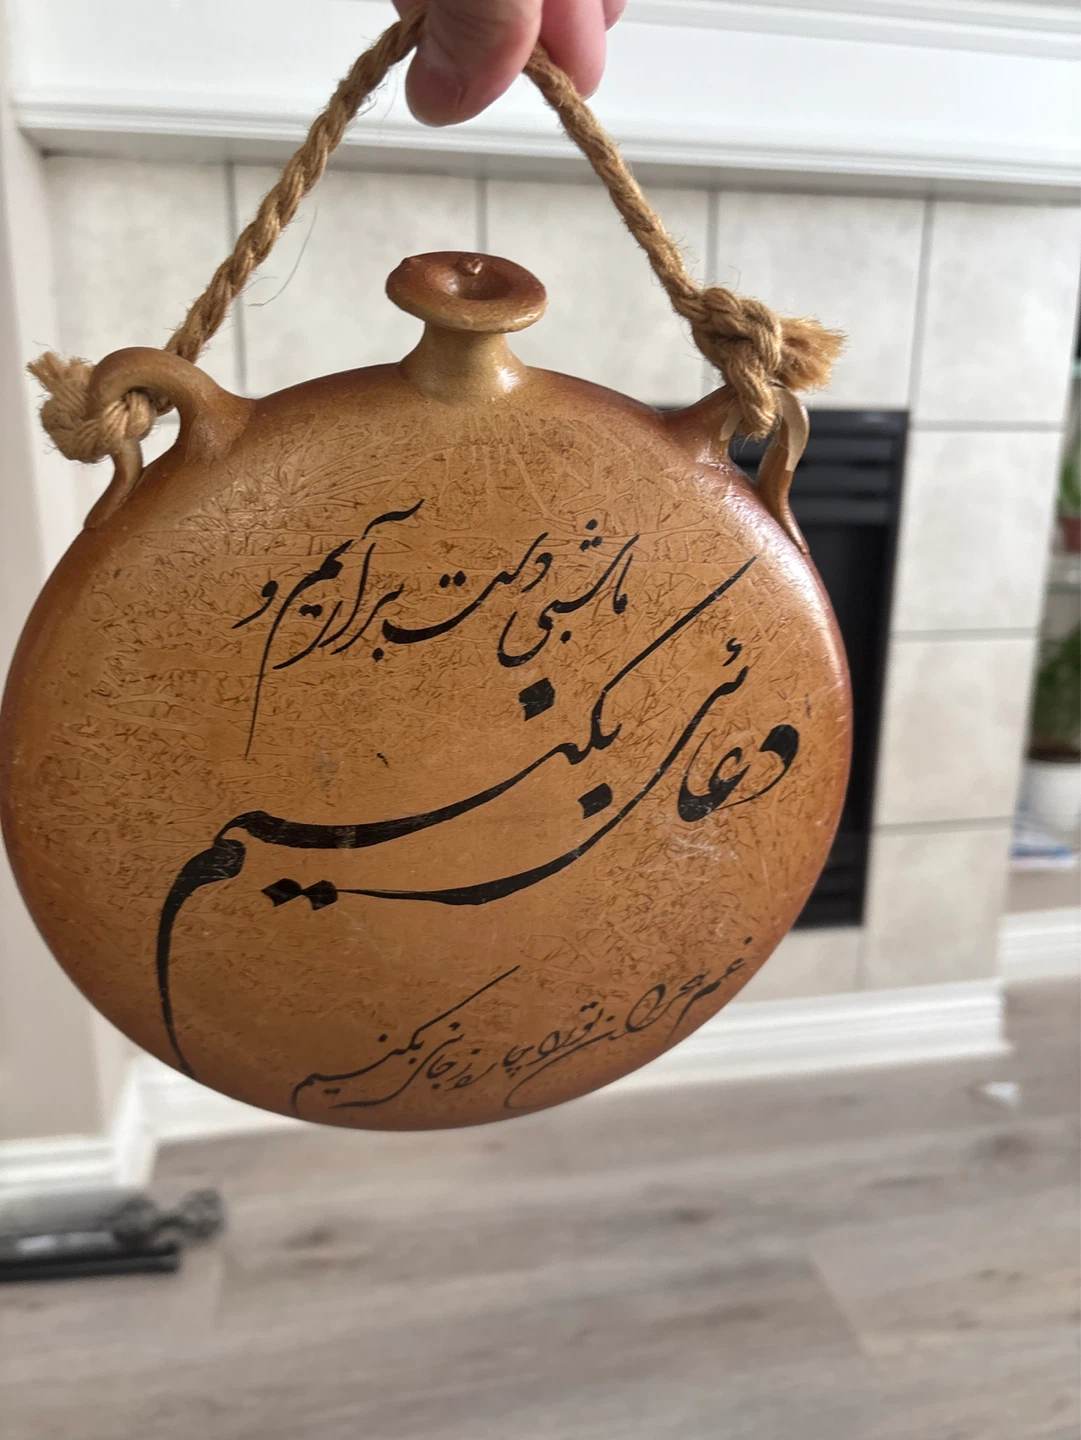 ما شبی دست برآریم و
دعائی بکنیم
غم هجران تو را چاره ز جائی بکنیم